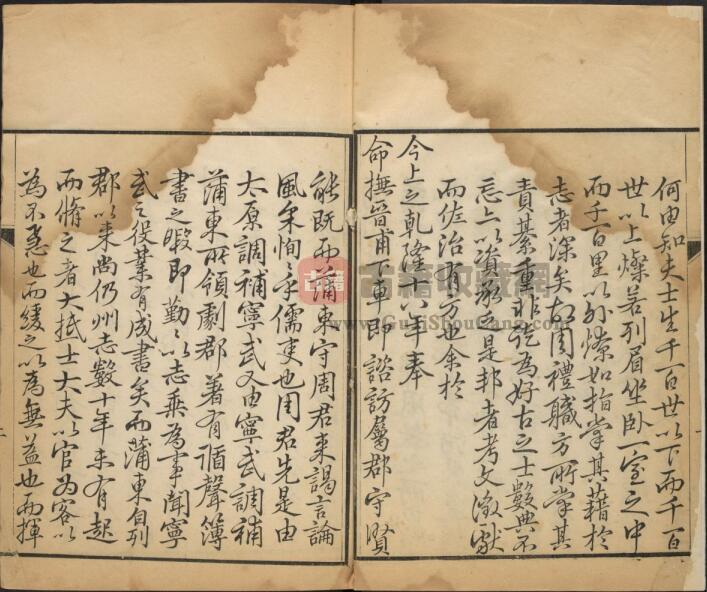 何由知夫士生千百世以下而千百
世以上燦若列眉坐臥一室之中
而千百里以外燎如指掌其藉於
志者深矣故周禮職方所掌其
責綦重非徒為好古之士數典不
忘亦以資夫是邦者考文徵獻
而佐治有方也余於
今上之乾隆十八年奉
命撫晉甫下車即諮訪屬郡守賢
能既而蒲東守周君來謁言論
風采恂恂乎儒吏也周君先是由
太原調補寧武又由寧武調補
蒲東所領劇郡著有循聲簿
書之暇即勤勤以志乘為事聞寧
武之役業有成書矣而蒲東自列
郡以來尚仍州志數十年未有起
而脩之者大抵士大夫以官為客以
為不急也而緩之以為無益也而揮
古籍收藏網
www.GuJiShouCang.com